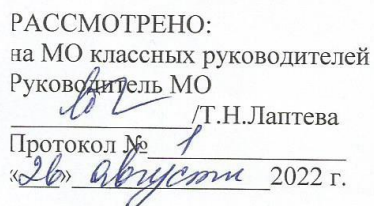 РАССМОТРЕНО:
на МО классных руководителей
Руководитель МО
/Т.Н.Лаптева
Протокол № 1
«26» августа 2022 г.